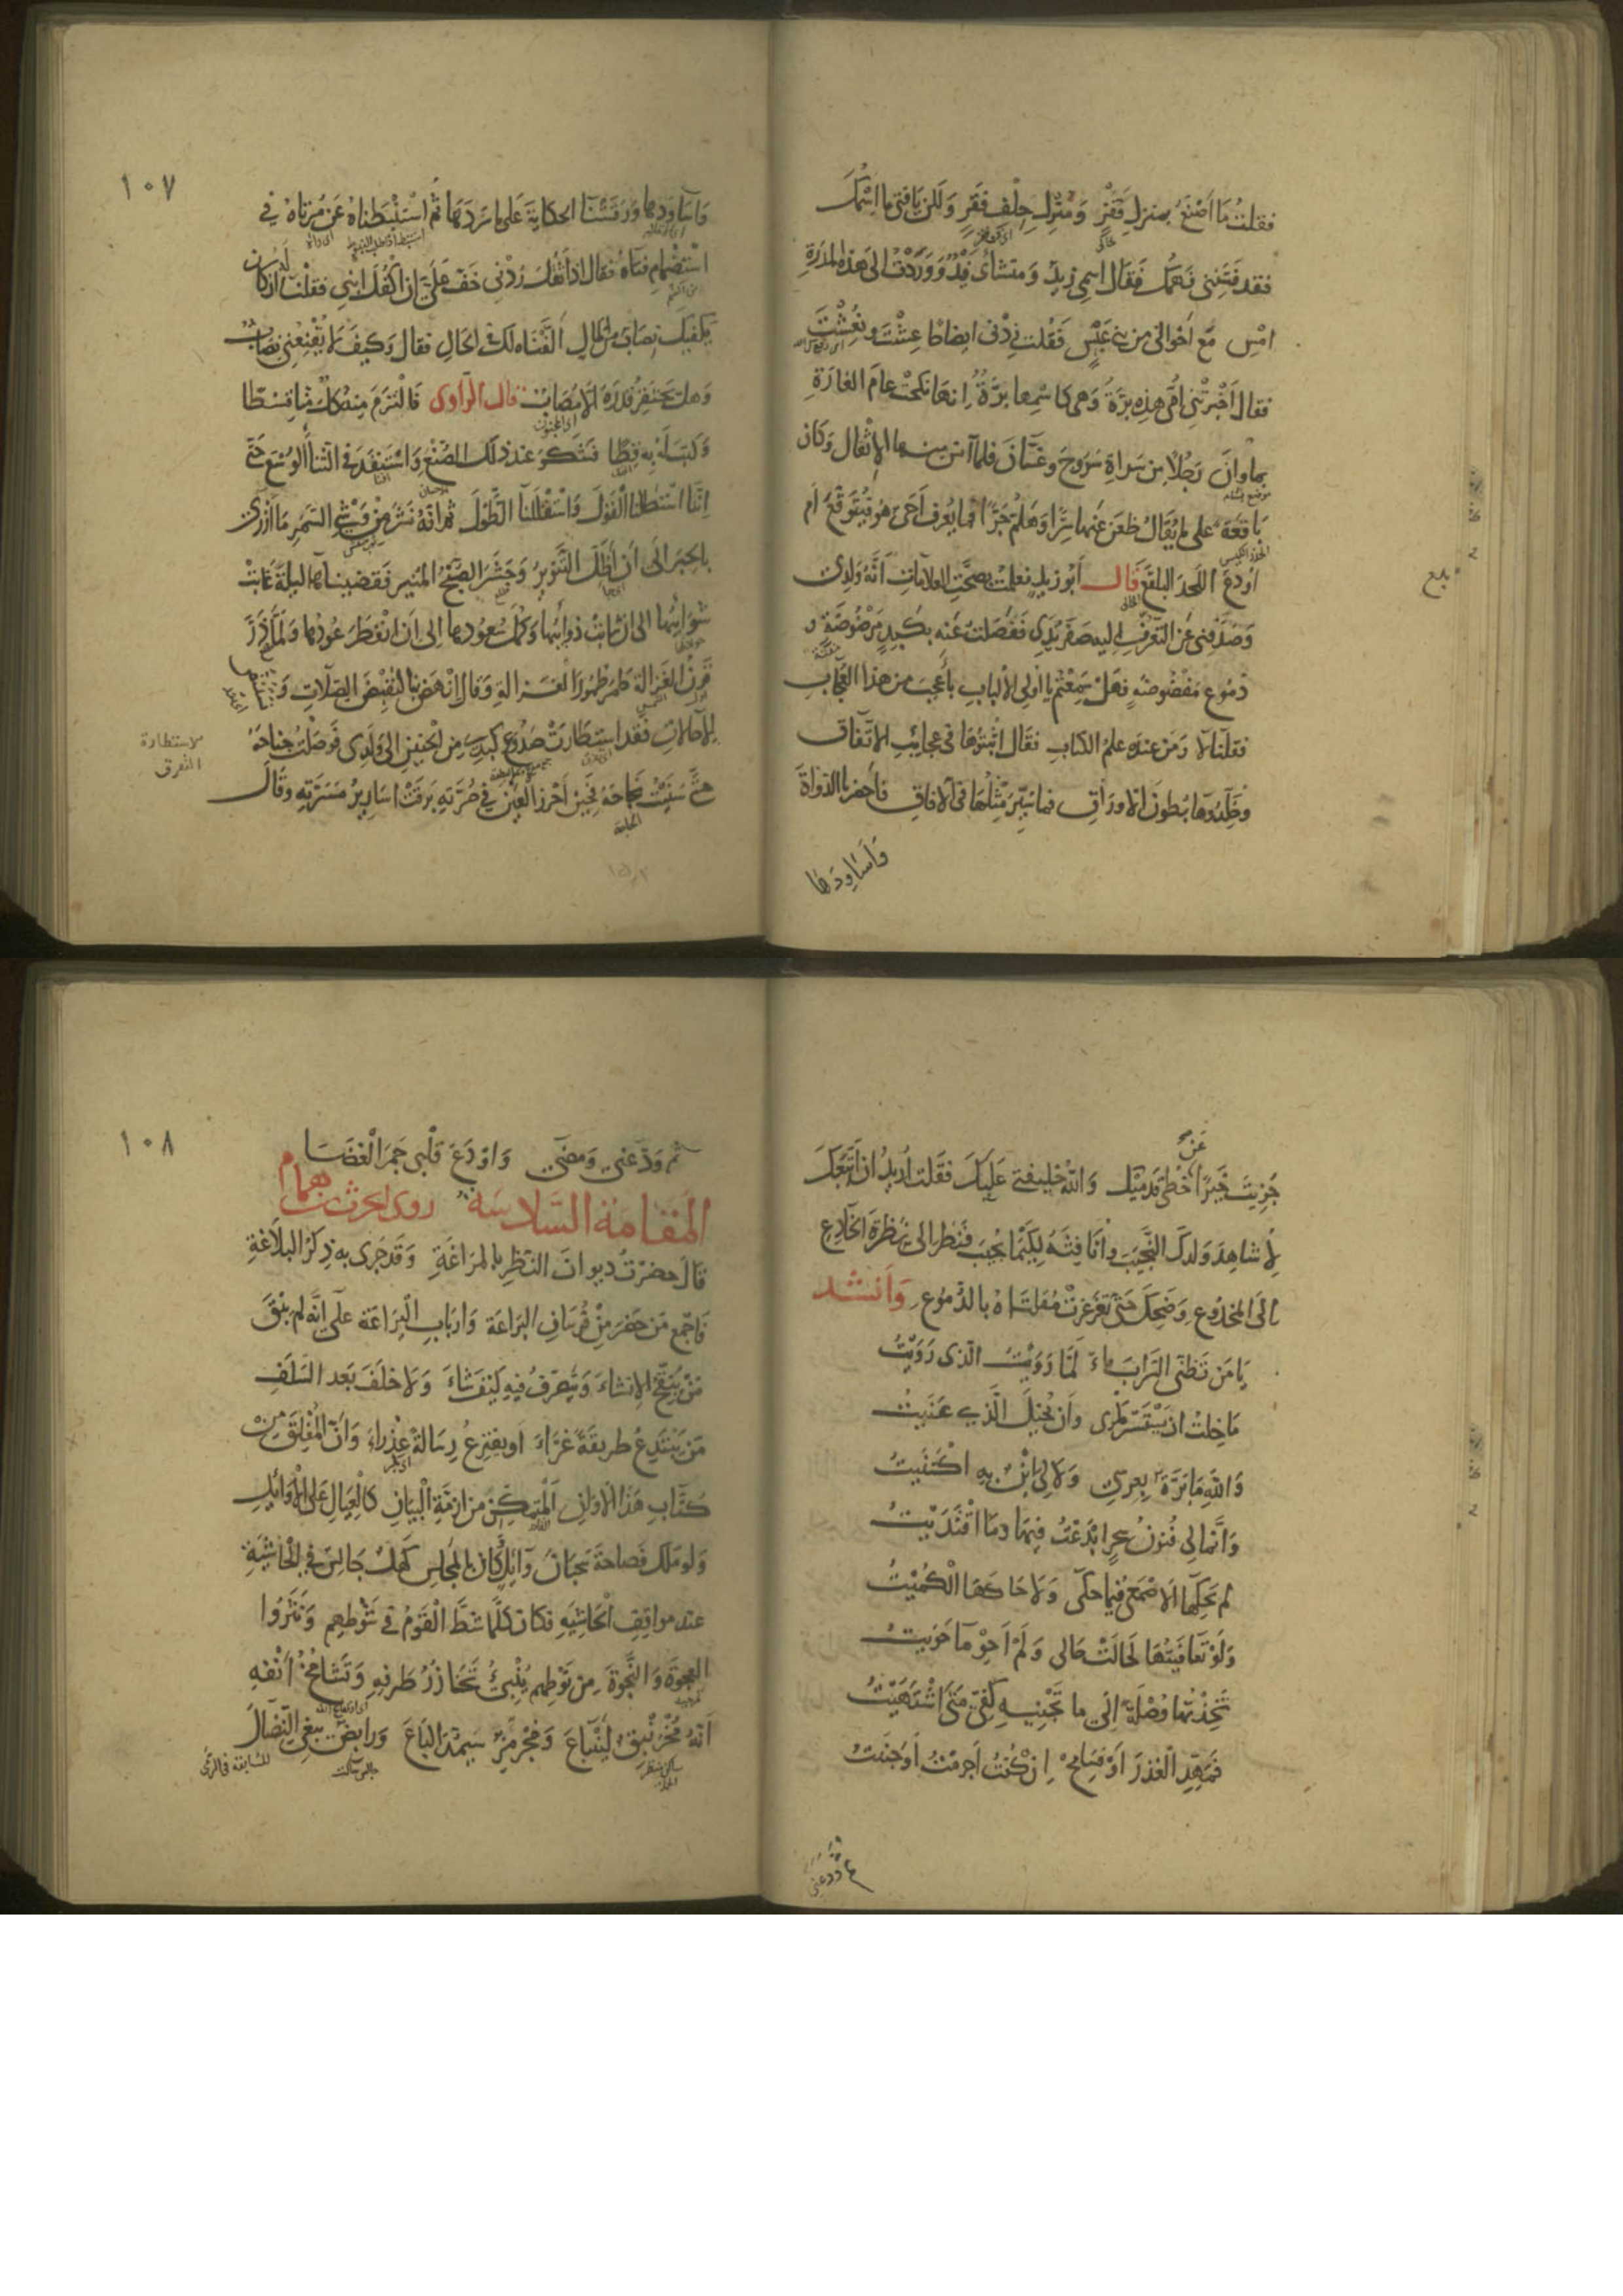 فقلتُ مَا اَصْنَعُ بمنزلٍ قَفْرٍ وَمُنْزِلٍ حِلْفِ فَقْرٍ وَلكن يَا فتى ما اسْمُكَ
فقد فَتَنَنِي فَهمُك فَقَال اسمِي زيدٌ وَمنشاىَ فَيْدٌ وَوَرَدْتُ الى هذه المدَرَةِ
امْسِ مَعَ اَخْوالى من بنى عَبْسٍ فَقُلت زِدْنى ايضاحًا عِشْتَ ونُعِشْتَ
فقال اَخْبرَتْنى اُمّى بَرَّةُ وَهى كاسْمِها بَرَّةٌ اِنها نكحَتْ عامَ الغارَةِ
بماوانَ رَجُلًا من سَراةِ سَرُوجَ وغسّانَ فلمّا آنسَ منها الاِثْقال وَكان
بَاقعَةً على ما يُقالُ ظعَن عَنها سِرًّا وَهلُمَّ جَرًّا فما يُعرف اَحىٌّ هو فيُتَوَقّعَ اَم
اُودِعَ اللحدَ البلقعَ قَال اَبُو زيدٍ فعلمْتُ بصِحَّةِ العلاماتِ اَنَّهُ وَلدِى
وَصَدَفنِى عَن التّعرّفِ اليهِ صَفَرُ يَدِى فَفَصَلتُ عَنه بِكَبِدٍ مَرْضُوضَةٍ و
دمُوعٍ مَفْضُوضةٍ فهَلْ سَمِعْتم يا اُولى الألبابِ باَعْجبَ من هذا العُجابِ
فقلنَا لا وَمَن عندهُ علمُ الكتابِ فقَال اثْبتُوهَا فى عجايبِ الاتّفاق
وخَلّدُوهَا بُطونَ الاورَاقِ فما سُيّر مثلُهَا فى الآفاقِ فاَحضرنا الدّواةَ
وَاَسَاوِدهَا
١٠٧
وَاَسَاوِدَها وَرَقَشْنَا الحكايَةَ عَلى ما سَرَدَهَا ثُم اسْتَبْطَنّاهُ عَن مُرْتآهُ فى
اسْتضْمامِ فتاهُ فَقال اذا ثقُلَ رُدْنى خَفّ عَلىَّ ان اَكْفُلَ ابْنى فقلنا ان كَان
يكفيكَ نِصابٌ من المالِ اَلَّفْناه لَكَ فى الحالِ فقال وَكيفَ لا يُقْنِعُنى نِصابٌ
وَهل يَحتقِرُ قدْرَهُ الّا مُصَابٌ قال الرّاوى فَالْتزَمَ مِنهُ كلٌّ مِنّا قِسْطًا
وَكتبَ لَهُ بِهِ قِطًّا فَشكرَ عند ذلك الصُّنْعَ وَاسْتَنفَدَ فى الثّناءِ الوُسْعَ حَتّى
اِنّنَا اسْتَطلنَا القَولَ وَاسْتَقْلَلنَا الطَّوْلَ ثم اِنّهُ نَشَرَ مِنْ وَشْىِ السّمَرِ مَا اَزْرى
بالحِبَرِ الى أن أظلّ التَّنْوِيرُ وَجَشَرَ الصّبْحُ المُنير فَقضينَاها ليلةً غابَتْ
شَوائبُها الى ان شابَتْ ذَوائبُها وَكمُلَ سُعُودهَا الى ان انْفطَرَ عُودُها وَلمّا ذَرَّ
قرنُ الغَزالَةِ طمَرَ طُمُورَ الغزالةِ وَقال انْهَضْ بنا لنَقْبِضَ الصِّلاتِ وَنَسْتَنِضّ
الاِحالاتِ فَقد اسْتطَارَتْ صُدُوعُ كَبِدِى مِن الحنينِ الى وَلَدِى فَوصَلتُ جناحَهُ
حتّى سَنّيْتُ نَجاحَهُ فَحِينَ اَحْرزَ العَينَ فى صُرّتِهِ بَرقَتْ اَسَارِيرُ مَسَرّتِهِ وَقَال
الاستطارة
التفرق
جُزِيتَ خَيرًا عَن خُطى قَدَمَيْكَ وَاللهُ خليفتى عَليكَ فقلت اُريدُ ان اَتبعَكَ
لأُشاهِدَ وَلدكَ النّجِيبَ وانَافِثَهُ لِكَيْمَا يُجِيبَ فنظرَ الىّ نَظرَةَ الخادِعِ
الَى المَخدُوعِ وَضَحِكَ حَتّى تَغرغَرَتْ مُقلَتَاهُ بالدّمُوعِ وَاَنْشد
يَا مَن تَظنّى السّرَابَ مَاءً لَمّا رَوَيْتُ الّذى رَوَيْتُ
مَا خِلتُ ان يَسْتَسِرَّ مَكْرِى وَأن يُخيلَ الَّذِى عَنَيتُ
وَاللهِ مَا بَرَّةٌ بِعِرْسِى وَلا لِىَ ابْنٌ بِهِ اكْتَنَيتُ
وَانّمَا لى فُنُونُ سِحرٍ اَبْدَعْتُ فِيهَا وَمَا اقْتَدَيْتُ
لم يَحكِهَا الاَصْمَعىّ فيمَا حكَى وَلا حَاكهَا الكُمَيْتُ
وَلَوْ تعَافَيْتُهَا لَحَالَتْ حَالى وَلَمْ اَحْوِ مَا حَوَيتُ
تَخِذْتُهَا وُصْلَةً اِلى ما تَجْنِيهِ كَفّى مَتَى اشْتَهَيْتُ
فَمهِّدِ العُذرَ اَوْ فَسَامِحْ اِنْ كُنْتُ اَجرَمْتُ اَو جَنَيتُ
ثم وَدَّعَنى
١٠٨
ثم وَدّعَنى وَمضَى وَاَوْدَعَ قلْبى جَمرَ الْغَضَا
المَقامة السَّادسَة روى الحرث بن همام
قَالَ حضرْتُ ديوانَ النّظَرِ بالمَرَاغَةِ وَقَد جَرَى به ذِكْرُ البلاَغةِ
فَاَجْمَعَ مَن حَضَر مِنْ فُرْسَانِ اليَرَاعَةِ وَاَربَابِ البَرَاعَة علَى اَنَّه لم يَبْقَ
مَنْ يُنَقّحُ الاِنشاءَ وَيتصَرّفُ فيهِ كَيْفَ شَاءَ وَلا خلَفَ بَعد السّلَفِ
مَن يَبْتَدِعُ طريقَةً غَرّاءَ اَو يفترِعُ رِسَالَةً عذْراءَ وَانّ المُفْلِقَ مِنْ
كُتّابِ هَذا الاَوانِ المُتَمَكّنَ من ازمّةِ الْبَيانِ كالْعِيَالِ عَلى الاَوَائِلِ
وَلو مَلكَ فَصاحَةَ سَحبَانَ وَآيِلٍ وَكَانَ بالمجلِسِ كَهلٌ جَالِسٌ فى الحَاشيَةِ
عند مواقِفِ الحَاشِيَةِ فكان كلّمَا شَطَّ القَوْمُ فى شَوْطِهم وَنَثَرُوا
العجوَةَ وَالنَّجْوَةَ من نَوْطِهم يُنْبِئُ تَخَازُرُ طَرفهِ وَتَشَامُخُ اَنْفهِ
اَنّه مُخْرَنْبِقٌ لِيَنْباعَ وَمُجْرَمِّزٌ سَيَمُدّ البَاعَ وَرابضٌ يبغِى النِّضَالَ